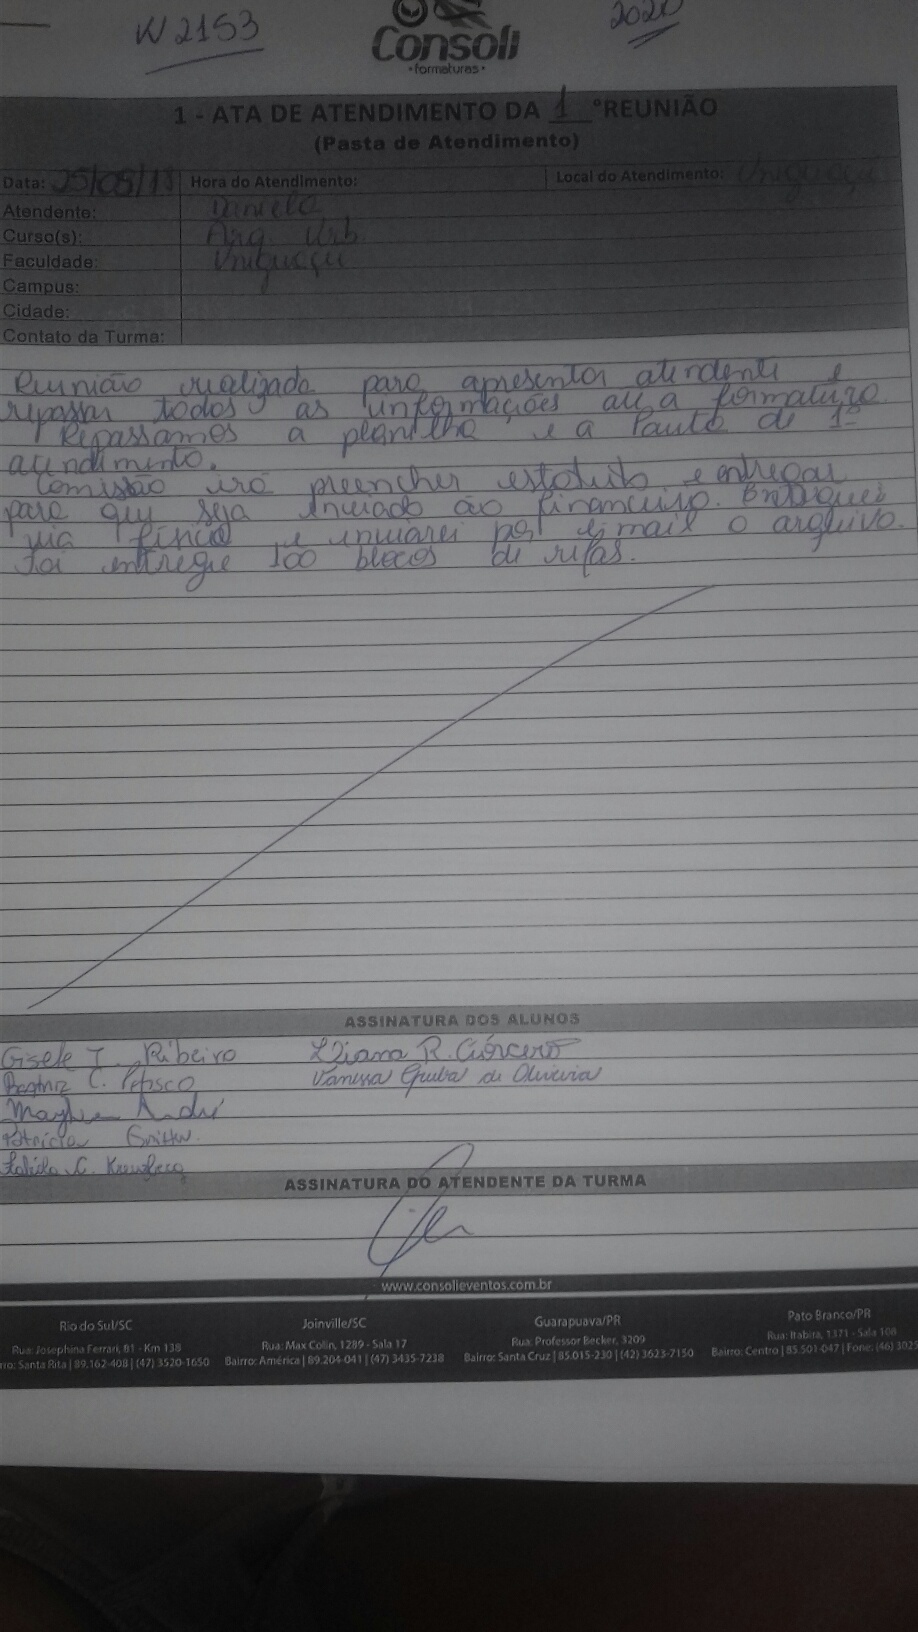 W 2153
2020
Consoli
• formaturas •
1 - ATA DE ATENDIMENTO DA 1 ºREUNIÃO
(Pasta de Atendimento)
Data: 25/05/18 Hora do Atendimento: Local do Atendimento: Uniguaçu
Atendente: Daniela
Curso(s): Arq. Urb.
Faculdade: Uniguaçu
Campus:
Cidade:
Contato da Turma:
Reunião realizada para apresentar atendente e
repassar todos as informações até a formatura.
Repassamos a planilha e a Pauta de 1º
atendimento.
Comissão irá preencher estatuto e entregar
para que seja enviado ao financeiro. Entreguei
via física e enviarei por email o arquivo.
Foi entregue 100 blocos de rifas.
ASSINATURA DOS ALUNOS
Gisele T. Ribeiro
Beatriz C. Petisco Vanessa de Oliveira
André
Patricia
C.
ASSINATURA DO ATENDENTE DA TURMA
www.consolieventos.com.br
Rio do Sul/SC Joinville/SC Guarapuava/PR Pato Branco/PR
Rua: Josephina Ferrari, 81 - Km 138 Rua: Max Colin, 1289 - Sala 17 Rua: Professor Becker, 3209 Rua: Itabira, 1371 - Sala 108
rro: Santa Rita | 89.162-408 | (47) 3520-1650 Bairro: América | 89.204-041 | (47) 3435-7238 Bairro: Santa Cruz | 85.015-230 | (42) 3623-7150 Bairro: Centro | 85.501-047 | Fone: (46) 3025